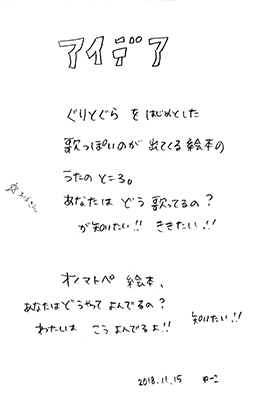 アイデア
ぐりとぐら をはじめとした
歌っぽいのが 出てくる絵本の
うたの ところ。
あなたは どう歌ってるの?
が知りたい!! ききたい!!
オノマトペ 絵本、
あなたはどうやって よんでるの?
知りたい!!
わたしは こうよんでるよ!!
2018.11.15